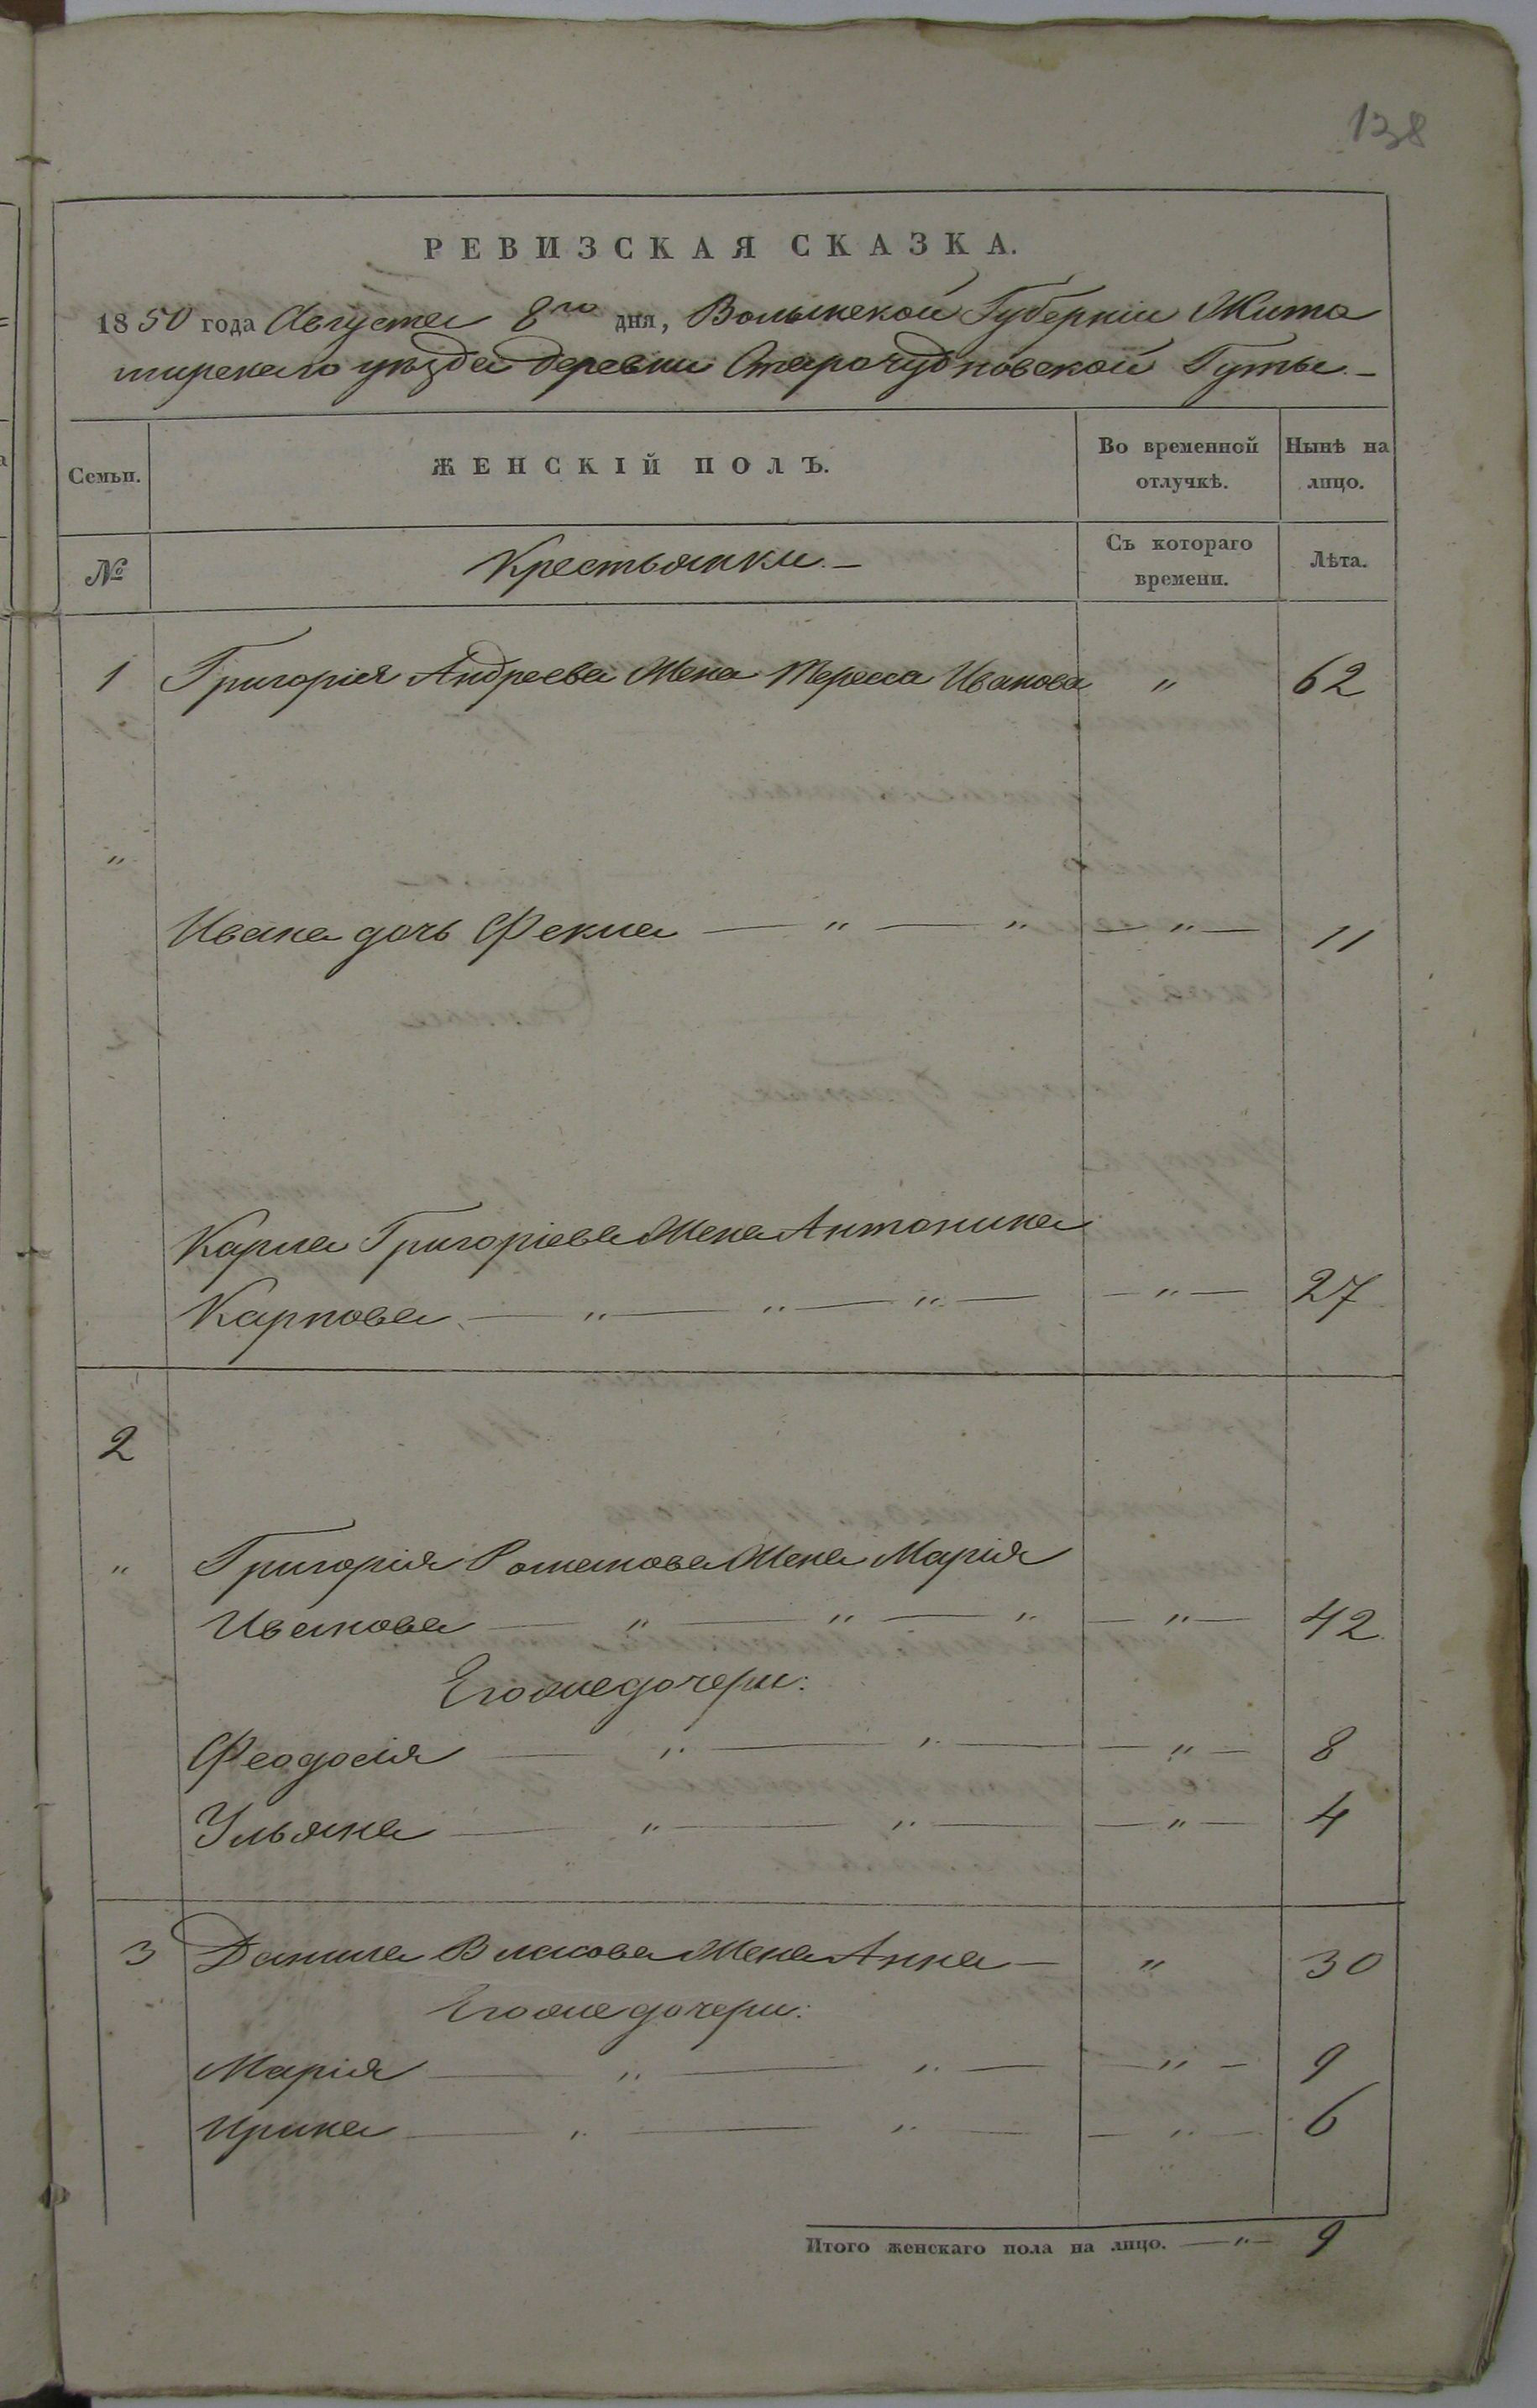 138
РЕВИЗСКАЯ СКАЗКА.
1850 года Августа 8го дня, Волынской Губерніи Жито
мирскаго уѣзда деревни Старочудновской Гуты.—
Семьи. ЖЕНСКІЙ ПОЛЪ. Во временной отлучкѣ. Нынѣ на лицо.
№ Крестьянки.— Съ котораго времени. Лѣта.
1 Григорія Андреева Жена Тереса Иванова " 62
"
Ивана дочь Фекла — " — " — " — 11
Карпа Григоріева Жена Антонина
Карпова — " — " — " — — " — 27
2
" Григорія Романова Жена Марія
Иванова — " — " — " — " — 42
Его же дочери:
Феодосія — " — " — — " — 8
Ульяна — " — " — — " — 4
3 Данила Власова Жена Анна — " 30
Его же дочери:
Марія — " — " — — " — 9
Ирина — " — " — — " — 6
Итого женскаго пола на лицо. — " — 9